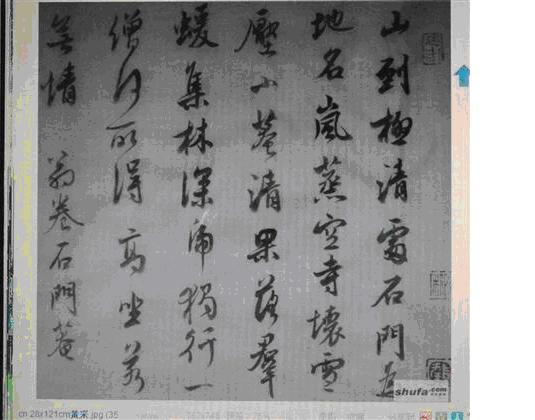 山到極清處石門為
地名嵐蒸空寺壞雪
壓小菴清果落群
蝯集林深虎獨行一
僧何所得高坐若
無情 翁卷石門菴
shufa.com
cn 28x121cm黄宋.jpg (35